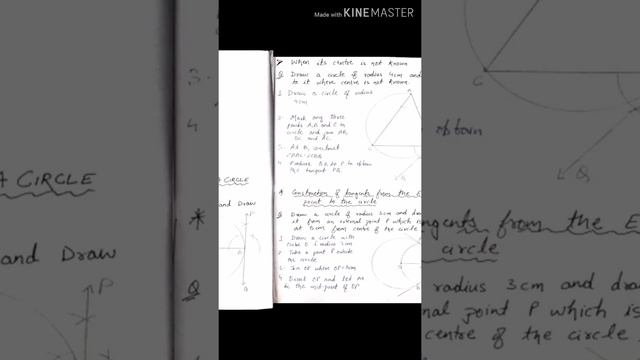 Made with KINEMASTER
A CIRCLE
and Draw
P
When its centre is not known
Q Draw a circle of radius 4cm and
to it where centre is not known.
1. Draw a circle of radius
4cm
2. Mark any three
points A, B and C on
circle and join AB,
BC and AC.
3. At B, construct
4. Produce
the tangent PQ.
A
C
Q
* Construction of tangents from the E
point to the circle
Q Draw a circle of radius 3cm and dra
it from an external point P which is
at 5cm from centre of the circle
1. Draw a circle with
radius 3cm
2. Take a point P outside
the circle
3. Join OP where OP=5cm
4. Bisect OP and let M
be the mid point of OP
3.
4
and Draw
*
Q
P
obtain
Q
ngents from the E
circle
radius 3cm and dra
nal point P which is
centre of the circle